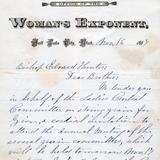 OFFICE OF THE
WOMAN'S EXPONENT,
Salt Lake City, Utah, Nov. 16 187
Bishop Edward Hunter,
Dear Brother,
I write you
in behalf of the Ladies Central
Committee on
you, a cordial invitation to
attend the Annual Meeting of the
annual grain committee, which
will be held tomorrow Nov. 17